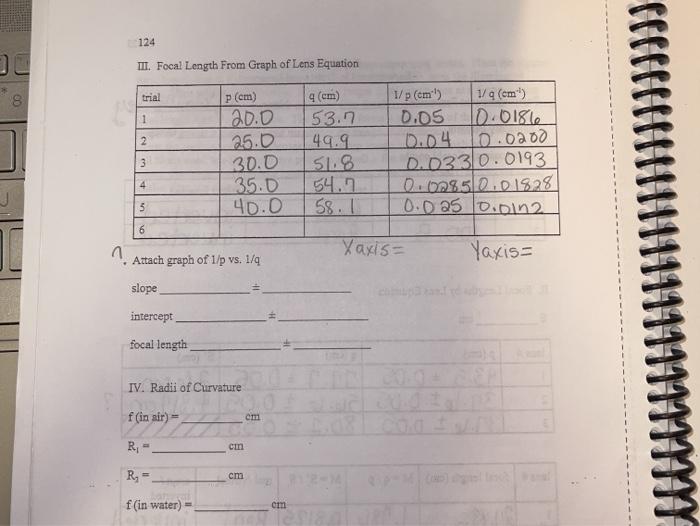 124
III. Focal Length From Graph of Lens Equation
trial p (cm) q (cm) 1/p (cm⁻¹) 1/q (cm⁻¹)
1 20.0 53.7 0.05 0.0186
2 25.0 49.9 0.04 0.0200
3 30.0 51.8 0.033 0.0193
4 35.0 54.7 0.0285 0.01828
5 40.0 58.1 0.025 0.0172
6
Xaxis= Yaxis=
7. Attach graph of 1/p vs. 1/q
slope ±
intercept ±
focal length ±
IV. Radii of Curvature
f (in air) = cm
R₁ = cm
R₂ = cm
f (in water) = cm
* 8